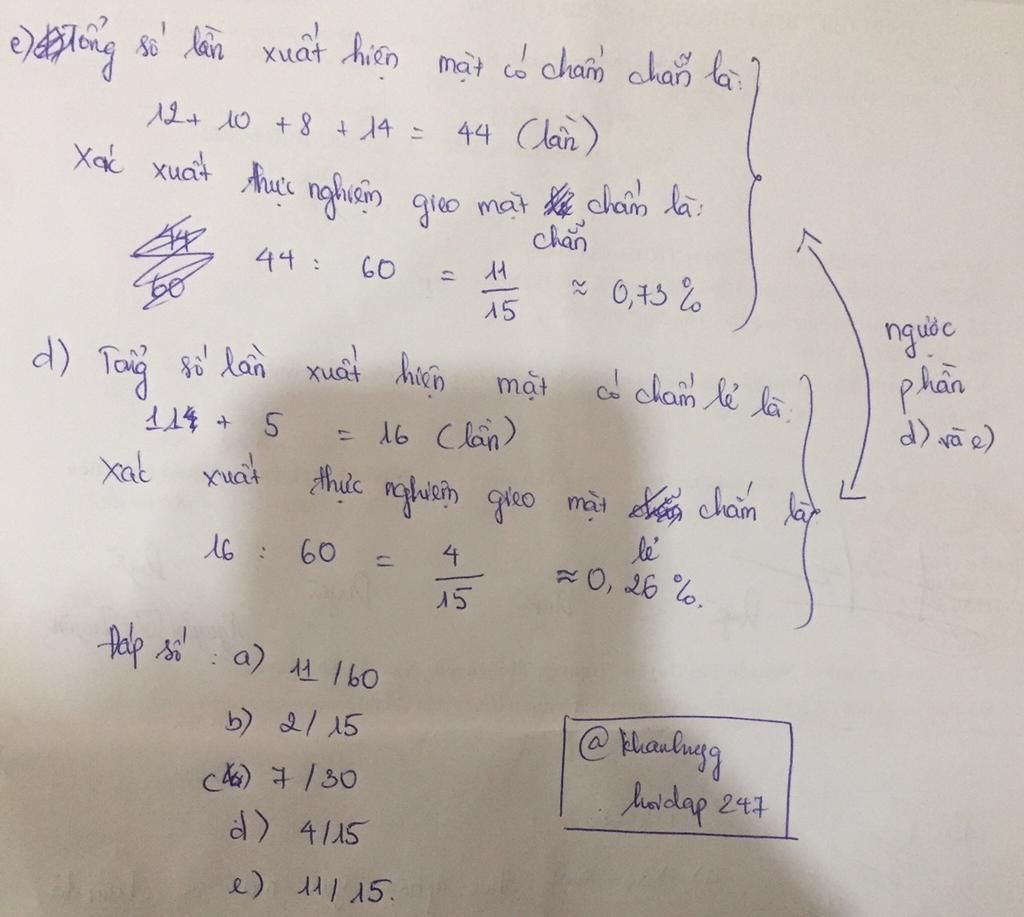 e) Tổng số lần xuất hiện mặt có chấm chẵn là:
12 + 10 + 8 + 14 = 44 (lần)
Xác xuất thực nghiệm gieo mặt chẵn chấm là:
44 : 60 = 11/15 ≈ 0,73 %
d) Tổng số lần xuất hiện mặt có chấm lẻ là:
11 + 5 = 16 (lần)
Xác xuất thực nghiệm gieo mặt lẻ chấm là:
16 : 60 = 4/15 ≈ 0,26 %.
ngược
phần
d) và e)
Đáp số : a) 11/60
b) 2/15
c) 7/30
d) 4/15
e) 11/15.
@khanhuyg
hoidap 247